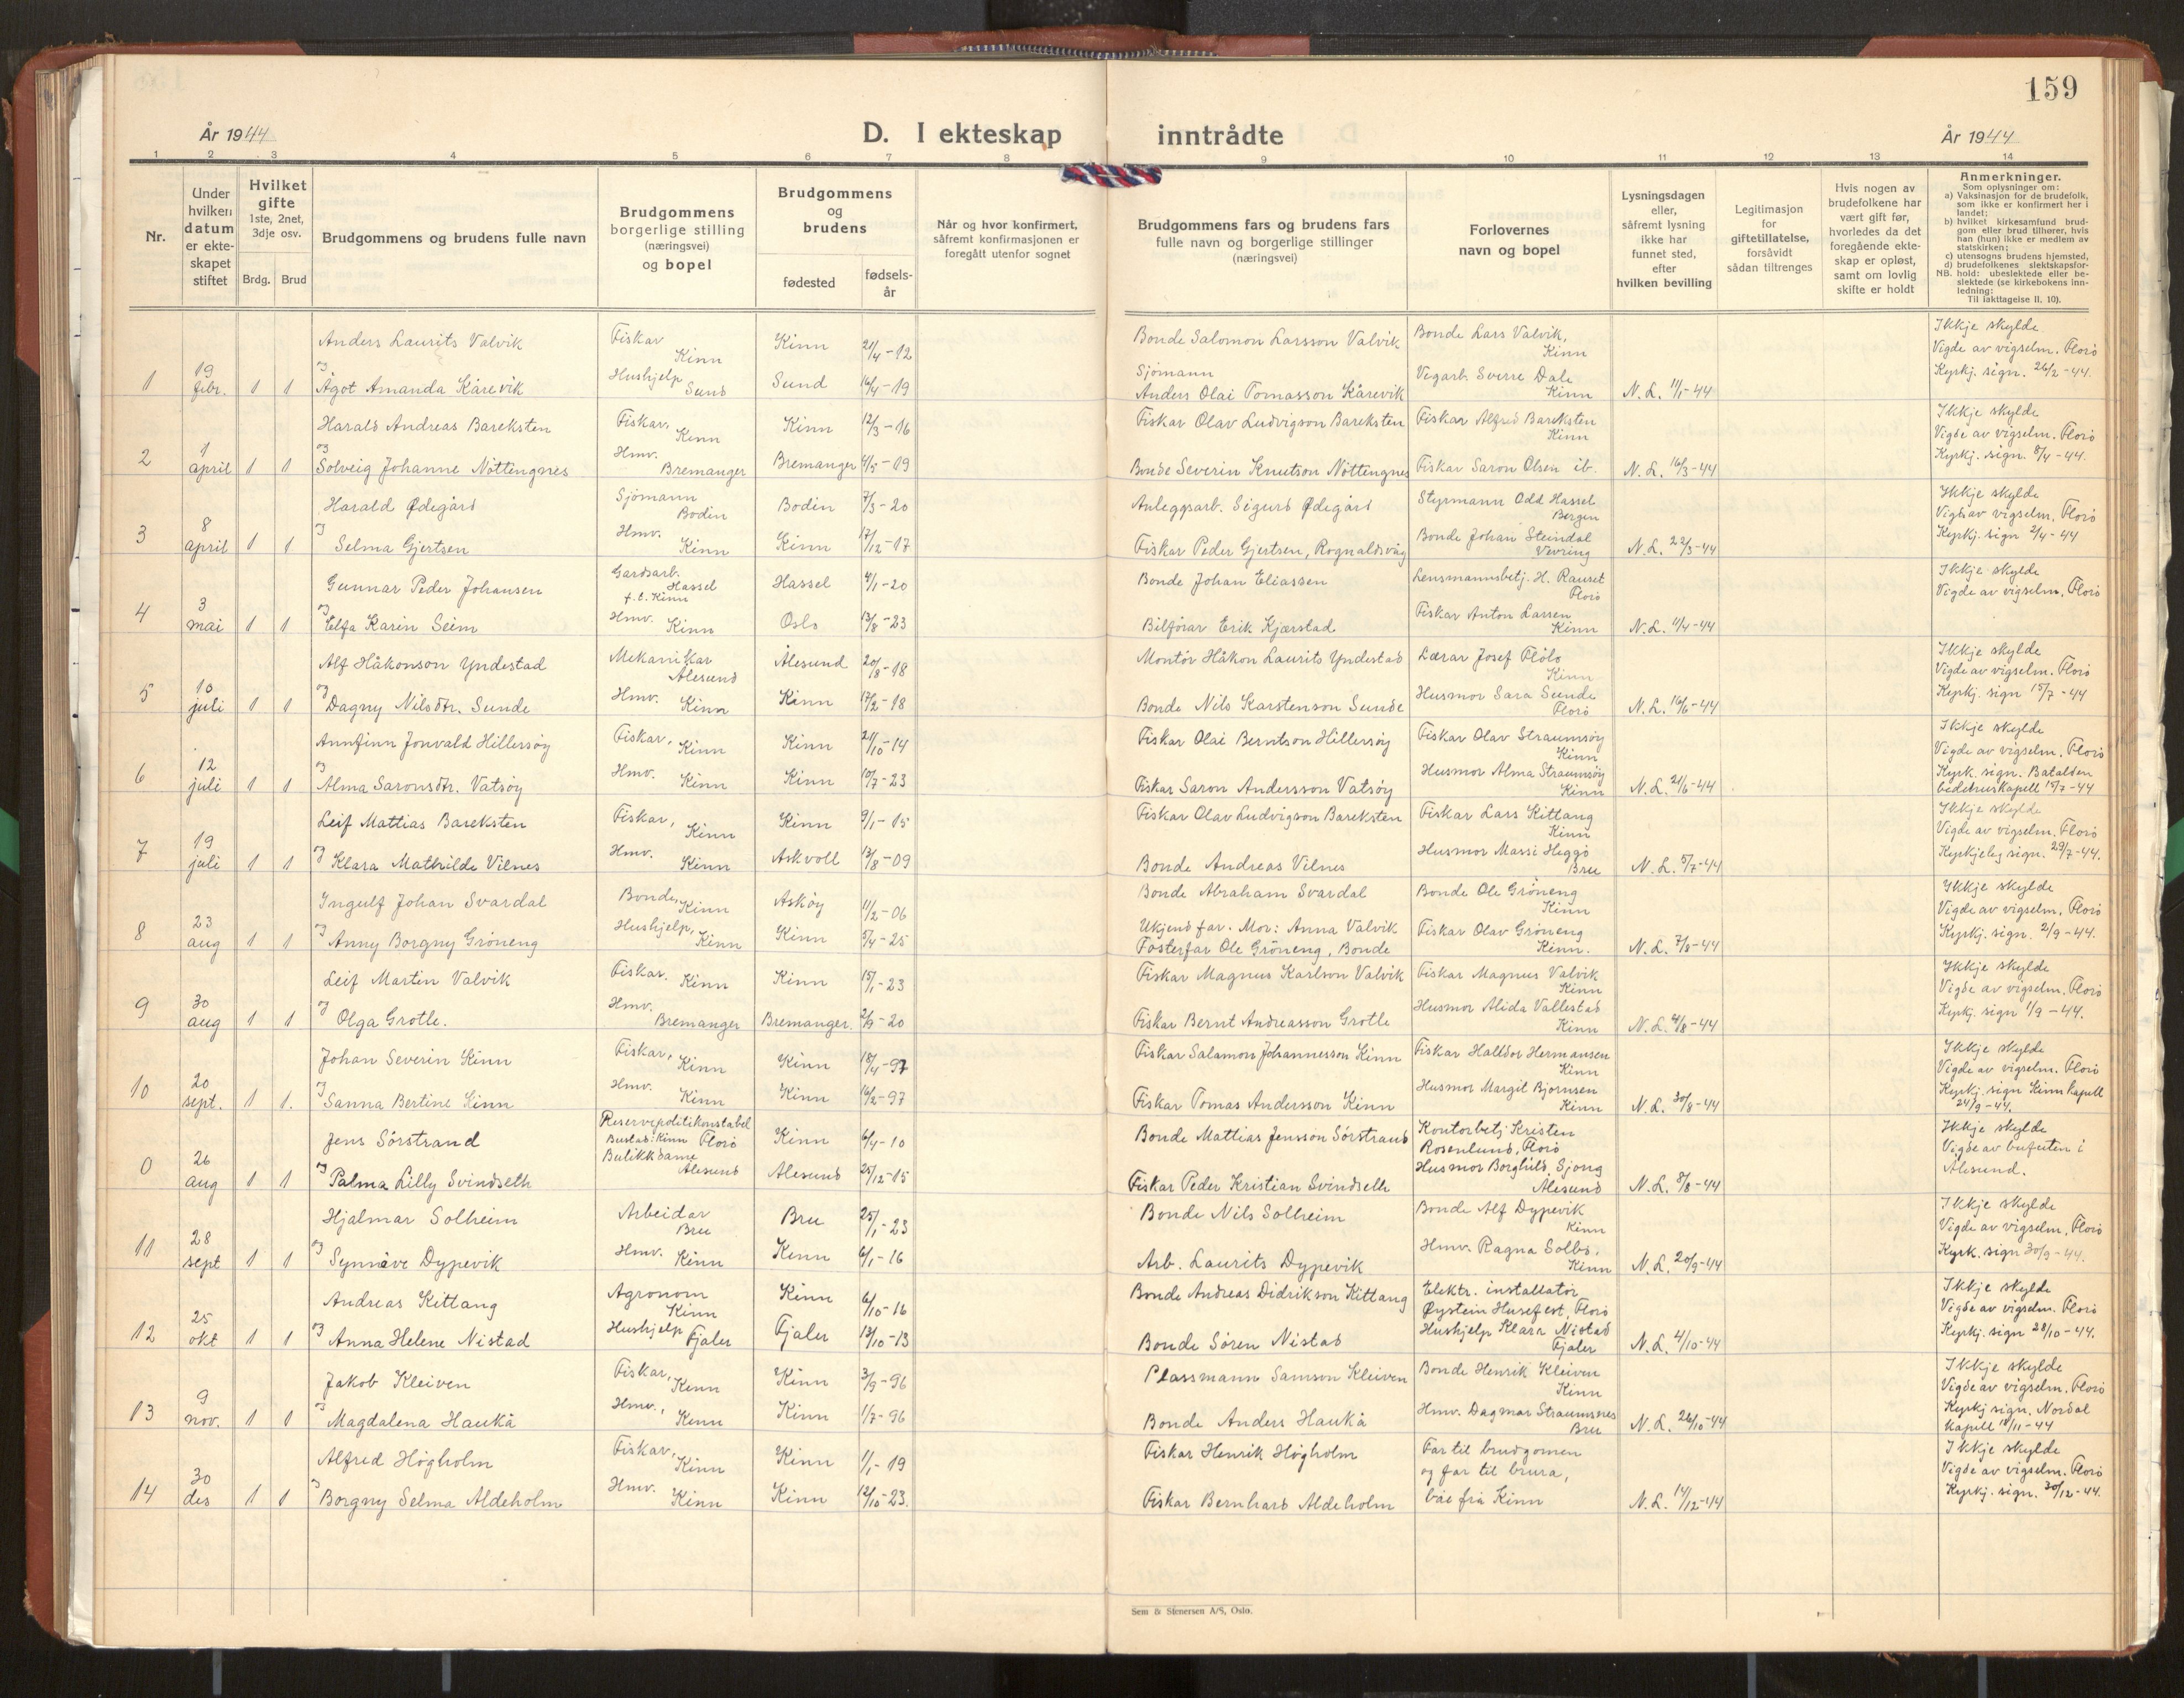 159
År 1944
D. I ekteskap inntrådte
År 1944
1 2 3 4 5 6 7 8 9 10 11 12 13 14
Nr.
Under hvilken datum er ekte-skapet stiftet
Hvilket gifte 1ste, 2net, 3dje osv.
Brdg. Brud
Brudgommens og brudens fulle navn
Brudgommens borgerlige stilling (næringsvei) og bopel
Brudgommens og brudens
fødested
fødsels-år
Når og hvor konfirmert, såfremt konfirmasjonen er foregått utenfor sognet
Brudgommens fars og brudens fars fulle navn og borgerlige stillinger (næringsvei)
Forlovernes navn og bopel
Lysningsdagen eller, såfremt lysning ikke har funnet sted, efter hvilken bevilling
Legitimasjon for giftetillatelse, forsåvidt sådan tiltrenges
Hvis nogen av brudefolkene har vært gift før, hvorledes da det foregående ekte-skap er opløst, samt om lovlig skifte er holdt
Anmerkninger.
Som oplysninger om:
a) Vaksinasjon for de brudefolk, som ikke er konfirmert her i landet;
b) hvilket kirkesamfund brud-gom eller brud tilhører, hvis han (hun) ikke er medlem av statskirken;
c) utensogns brudens hjemsted,
d) brudefolkenes slektskapsfor-hold: ubeslektede eller be-slektede (se kirkebokens inn-ledning:
NB.
Til iakttagelse II. 10).
Anders Laurits Valvik Fiskar Kinn Kinn 21/4-12 Bonde Salomon Larsson Valvik Bonde Lars Valvik, Kinn Ikkje skylde
1 19 febr. 1 1 og Ågot Amanda Kårevik Hushjelp Sund Sund 16/4-19 Sjømann Anders Olai Tomasson Kårevik Vegarb. Sverre Dale Kinn N.L. 11/1-44 Vigde av vigselm. Florø Kyrkj. sign. 26/2-44.
Harald Andreas Bareksten Fiskar, Kinn Kinn 12/3-16 Fiskar Olav Ludvigson Bareksten Fiskar Alfred Bareksten Kinn Ikkje skylde
2 1 april 1 1 og Solveig Johanne Nöttingnes Hmv. Bremanger Bremanger 4/5-19 Bonde Severin Knutson Nöttingnes Fiskar Saron Olsen ib. N.L. 16/3-44 Vigde av vigselm. Florø Kyrkj. sign. 8/4-44.
Harald Ødegård Sjömann Bodin Bodin 7/3-20 Anleggsarb. Sigurd Ødegård Styrmann Odd Hassel Bergen Ikkje skylde
3 8 april 1 1 og Selma Gjertsen Hmv. Kinn Kinn 17/12-17 Fiskar Peder Gjertsen, Rognaldsvåg Bonde Johan Steindal Vevring N.L. 22/3-44 Vigde av vigselm. Florø Kyrkj. sign 2/4-44
Gunnar Peder Johansen Gardsarb. Hassel f.t. Kinn Hassel 4/1-20 Bonde Johan Eliassen Lensmannsbetj. H. Rauset Florø Ikkje skylde
4 3 mai 1 1 og Elfa Karin Seim Hmv. Kinn Oslo 13/8-23 Bilförar Erik Kjærstad Fiskar Anton Larsen Kinn N.L. 11/4-44 Vigde av vigselm. Florø
Alf Håkonson Yndestad Mekanikar Ålesund Ålesund 20/8-18 Montör Håkon Laurits Yndestad Lærar Josef Flölo Kinn Ikkje skylde
5 10 juli 1 1 og Dagny Nilsdtr. Sunde Hmv. Kinn Kinn 17/2-18 Bonde Nils Karstenson Sunde Husmor Sara Sunde Florø N.L. 16/6-44 Vigde av vigselm. Florø Kyrkj. sign 15/7-44
Annfinn Jonvald Hillersöy Fiskar, Kinn Kinn 21/10-14 Fiskar Olai Berntson Hillersöy Fiskar Olav Straumsöy Kinn Ikkje skylde
6 12 juli 1 1 og Alma Saronsdtr. Vatsöy Hmv. Kinn Kinn 10/7-23 Fiskar Saron Andersson Vatsöy Husmor Alma Straumsöy Kinn N.L. 21/6-44 Vigde av vigselm. Florø Kyrk. sign. Batalden bedehuskapell 15/7-44
Leif Mattias Bareksten Fiskar, Kinn Kinn 9/1-15 Fiskar Olav Ludvigson Bareksten Fiskar Lars Kittang Kinn Ikkje skylde
7 19 juli 1 1 og Klara Mathilde Vilnes Hmv. Kinn Askvoll 13/8-09 Bonde Andreas Vilnes Husmor Massi Heggö Bru N.L. 5/7-44 Vigde av vigselm. Florø Kyrkjeleg sign. 29/7-44.
Ingulf Johan Svardal Bonde, Kinn Asköy 11/2-06 Bonde Abraham Svardal Bonde Ole Gröneng Kinn Ikkje skylde
8 23 aug 1 1 og Anny Borgny Gröneng Hushjelp, Kinn Kinn 5/4-25 Ukjend far. Mor: Anna Valvik Fosterfar Ole Gröneng, Bonde Fiskar Olav Gröneng Kinn. N.L. 7/8-44 Vigde av vigselm. Florø Kyrkj. sign. 2/9-44.
Leif Martin Valvik Fiskar. Kinn Kinn 15/1-23 Fiskar Magnus Karlson Valvik Fiskar Magnus Valvik Kinn Ikkje skylde
9 30 aug 1 1 og Olga Grotle. Hmv. Bremanger Bremanger. 2/9-20 Fiskar Bernt Andreasson Grotle Husmor Alida Vallestad Kinn N.L. 4/8-44 Vigde av vigselm. Florø Kyrkj. sign 1/9-44.
Johan Severin Kinn Fiskar, Kinn Kinn 18/4-97 Fiskar Salamon Johannesson Kinn Fiskar Halldor Hermansen Kinn Ikkje skylde
10 20 sept. 1 1. og Sanna Bertine Kinn Hmv. Kinn Kinn 16/2-97 Fiskar Tomas Andersson Kinn Husmor Margit Bjornsen Kinn N.L. 30/8-44 Vigde av vigselm. Florø Kyrkj. sign Kinn kapell 24/9-44.
Jens Sörstrand Reservepolitikonstabel Bustad: Kinn Florø Kinn 6/4-10 Bonde Mattias Jensson Sörstrand Kontorbetj. Kristen Rosenlund, Florø Ikkje skylde
0 26 aug 1 1 og Palma Lilly Svindseth Butikkdame Ålesund Ålesund 25/12-15 Fiskar Peder Kristian Svindseth Husmor Borghild Sjong Ålesund N.L. 8/8-44 Vigde av bufuten i Ålesund.
Hjalmar Solheim Arbeidar Bru Bru 25/1-23 Bonde Nils Solheim Bonde Alf Dypevik Kinn Ikkje skylde
11 28 sept 1 1 og Synnåve Dypevik Hmv. Kinn Kinn 6/1-16 Arb. Laurits Dypevik Hmv. Ragna Solbö. Kinn N.L. 20/9-44 Vigde av vigselm. Florø Kyrk. sign 30/9-44.
Andreas Kittang Agronom Kinn Kinn 6/10-16 Bonde Andreas Didrikson Kittang Elektr. installatör Øystein Husefest, Florø Ikkje skylde
12 25 okt 1 1 og Anna Helene Nistad Hushjelp Fjaler Fjaler 13/10-13 Bonde Sören Nistad Hushjelp Klara Nistad Fjaler N.L. 4/10-44 Vigde av vigselm. Florø Kyrkj. sign 28/10-44.
Jakob Kleiven Fiskar, Kinn Kinn 3/9-96 Plassmann Samson Kleiven Bonde Henrik Kleiven Kinn Ikkje skylde
13 9 nov. 1 1 og Magdalena Haukå Hmv., Kinn Kinn 1/7-96 Bonde Anders Haukå Hmv. Dagmar Straumsnes Bru N.L. 26/10-44 Vigde av vigselm. Florø Kyrkj sign. Nordal kapell 18/11-44
Alfred Högholm Fiskar, Kinn Kinn 1/1-19 Fiskar Henrik Högholm Far til brudgomen og far til brura, Ikkje skylde
14 30 des 1 1 og Borgny Selma Aldeholm Hmv. Kinn Kinn 12/10-23. Fiskar Bernhard Aldeholm båe frå Kinn N.L. 14/12-44 Vigde av vigselm. Florø Kyrkj. sign. 30/12-44.
Sem & Stenersen A/S, Oslo.